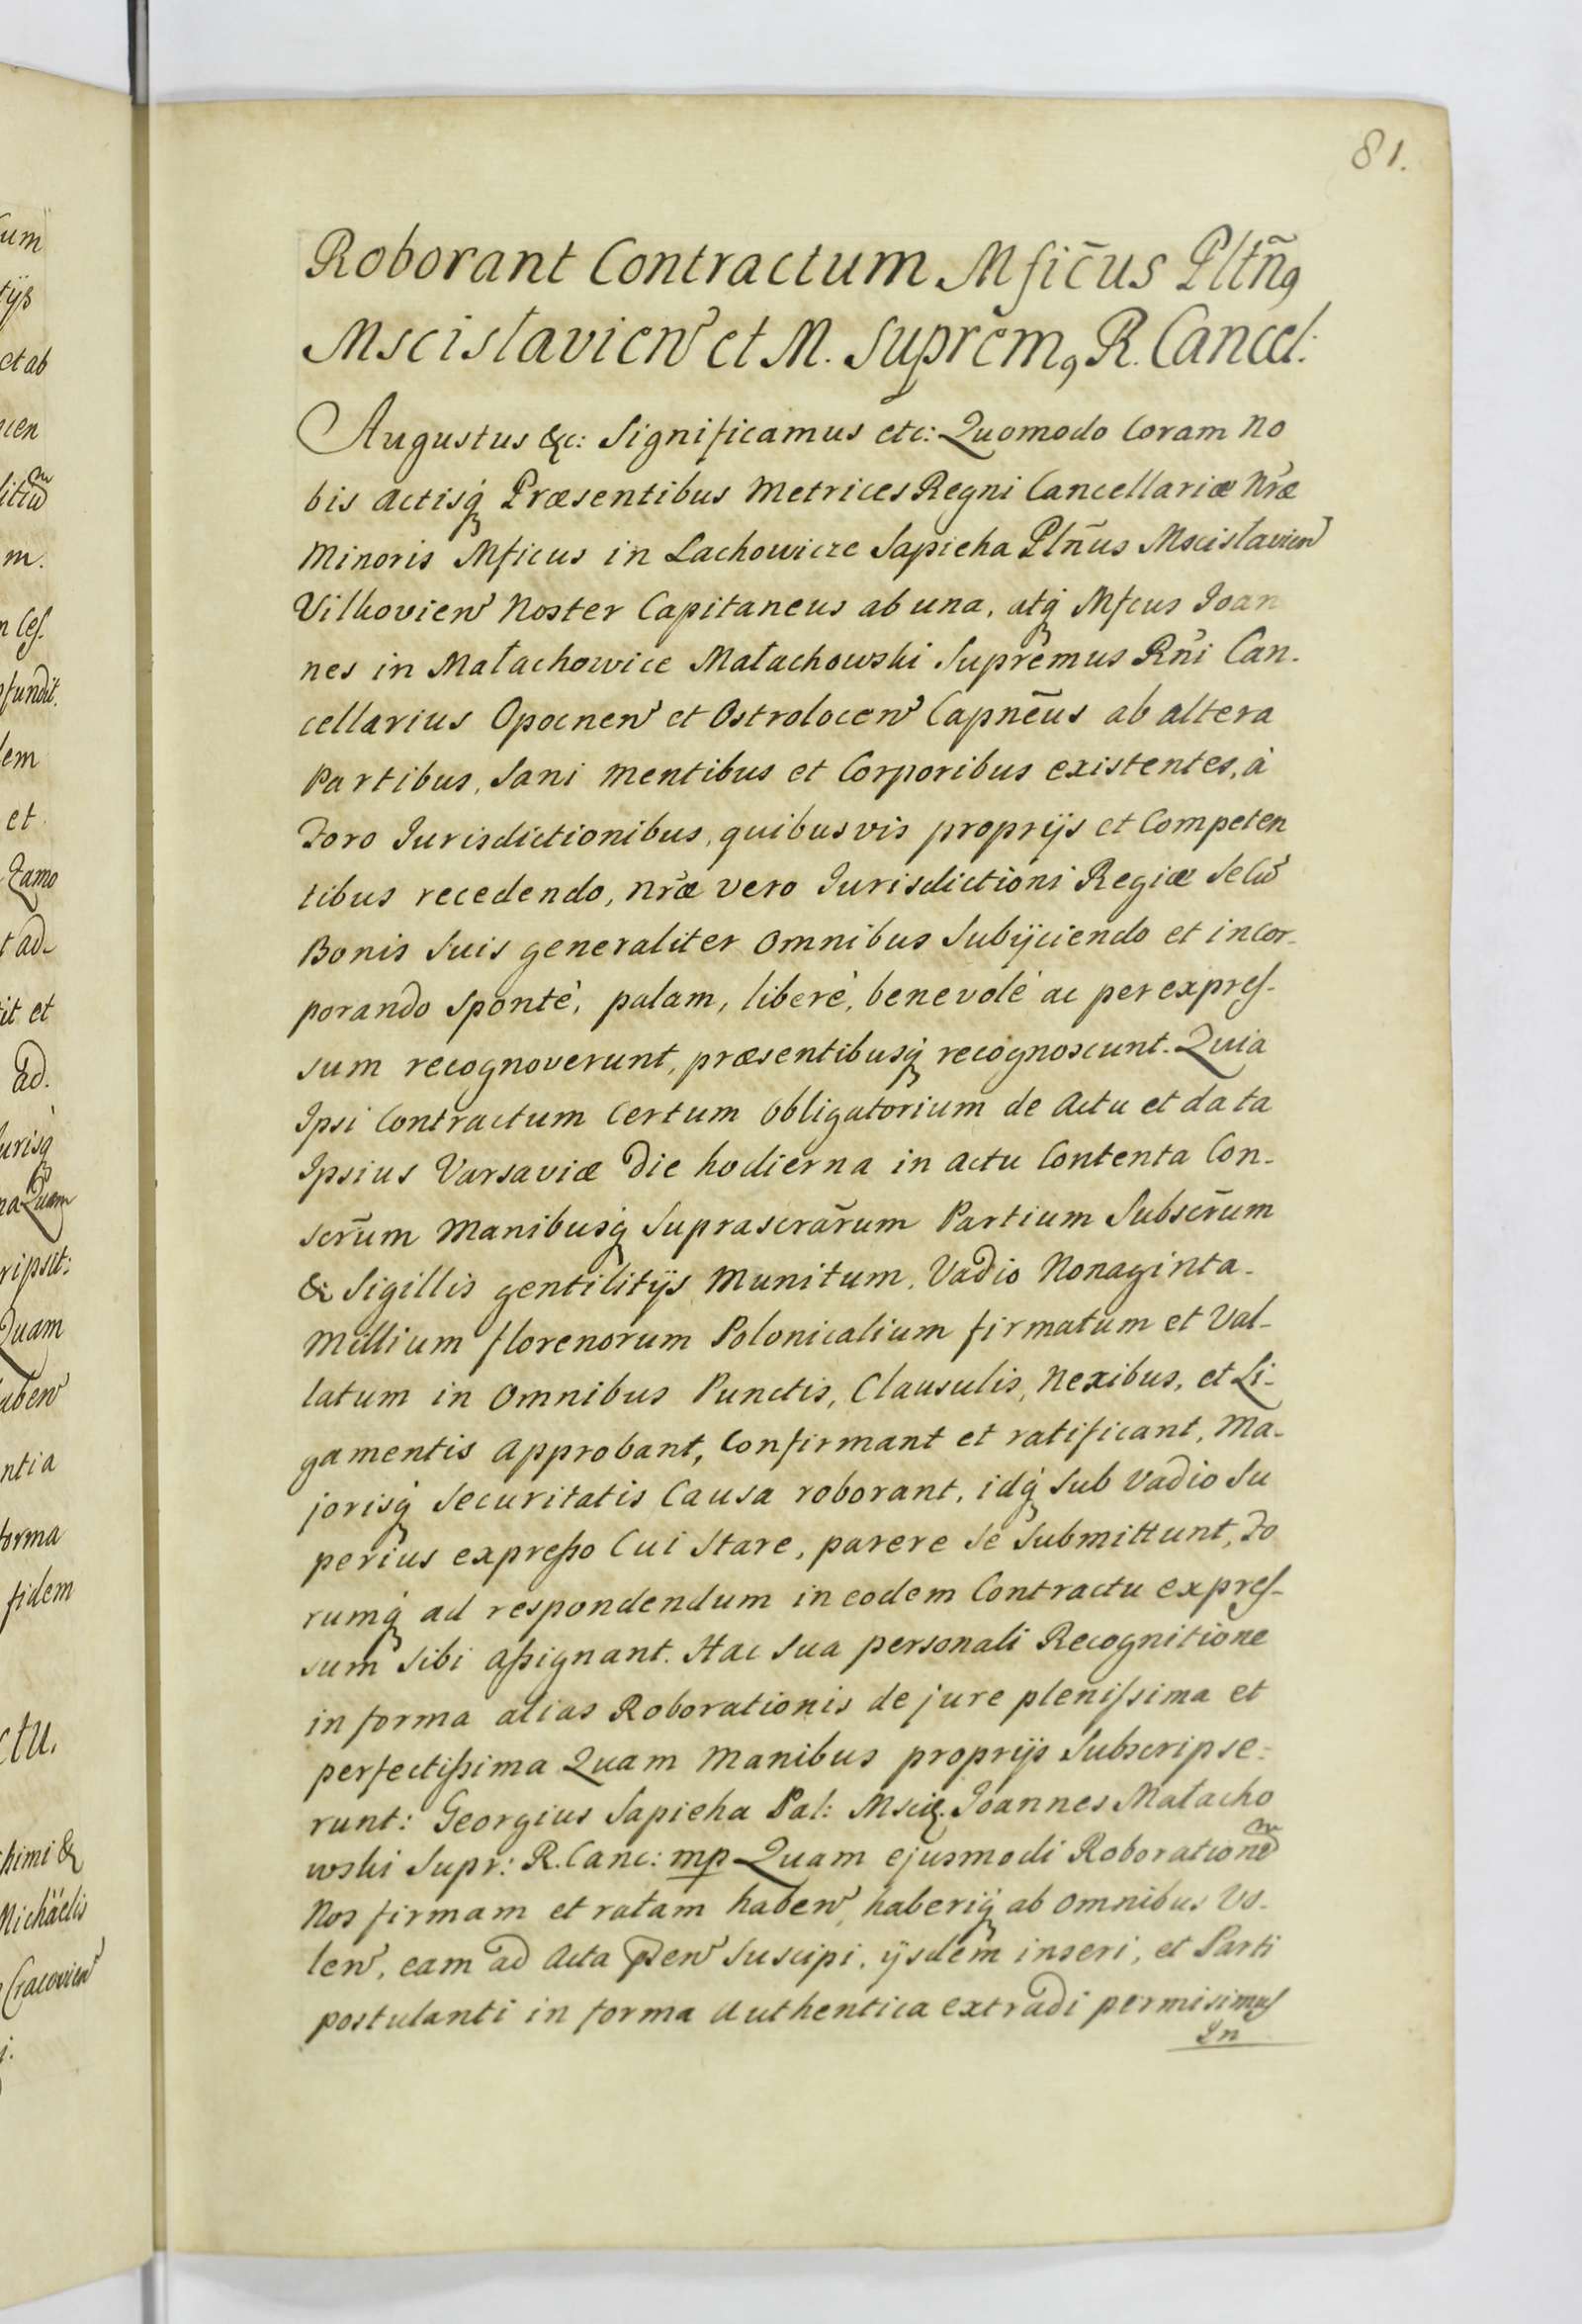 81.
Roborant Contractum Mficũs Pltñ9
Mscislavien et M. Suprem9 R. Cancel:
Augustus &c: Significamus etc: Quomodo Coram no
bis actisq Præsentibus Metrices Regni Cancellariæ Nræ
Minoris Mficus in Lachowicze Sapieha Pln̄us Mscislavien
Vilkovien Noster Capitaneus ab una, atq Mfcus Joan
nes in Małachowice Małachowski Supremus Rni Can-
cellarius Opocnen et Ostrolocen Capnēus ab altera
Partibus, Sani mentibus et Corporibus existentes, à
Foro Jurisdictionibus, quibusvis proprijs et Competen
tibus recedendo, nræ vero Jurisdictioni Regiæ Se cu
Bonis Suis generaliter omnibus Subijciendo et incor-
porando Sponte, palam, liberè, benevolè ac per expres-
sum recognoverunt, præsentibusq recognoscunt. Quia
Ipsi Contractum Certum obligatorium de Actu et data
Ipsius Varsaviæ Die hodierna in actu Contenta Con-
scr̄um Manibusq Suprascrārum Partium Subscr̄um
& Sigillis gentilitijs Munitum. Vadio Nonaginta-
Millium florenorum Polonicalium firmatum et Val-
latum in omnibus Punctis, Clausulis, Nexibus, et Li-
gamentis approbant, Confirmant et ratificant, Ma-
jorisq Securitatis Causa roborant, idq Sub Vadio Su
perius expresso Cui Stare, parere Se Submittunt, Fo
rumq ad respondendum in eodem Contractu expres-
sum Sibi assignant. Hac Sua personali Recognitione
in forma alias Roborationis de jure plenissima et
perfectissima Quam Manibus proprijs Subscripse-
runt: Georgius Sapieha Pal: Mscis. Joannes Małacho
wski Supr: R. Canc: mp Quam ejusmodi Roboratione
Nos firmam et ratam haben, haberiq ab omnibus Vo-
len, eam ad Acta psen Suscipi, ijsdem inseri, et Parti
postulanti in forma Authentica extradi permisimus
In
um
tijs
et ab
m.
em
et
Zamo
t ad-
it et
ad.
urisq
na Quam
ripsit:
Quam
uben
ntia
forma
fidem
ctu.
himi &
Michäelis
Cracovien